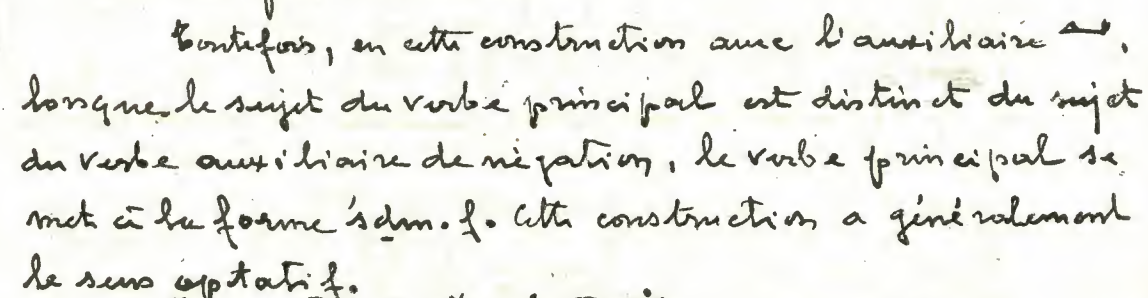 Toutefois, en cette construction avec l'auxiliaire 𓂜,
lorsque le sujet du verbe principal est distinct du sujet
du verbe auxiliaire de négation, le verbe principal se
met à la forme sḏm.f. Cette construction a généralement
le sens optatif.